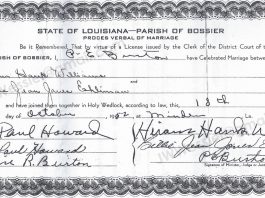 STATE OF LOUISIANA—PARISH OF BOSSIER
PROCES VERBAL OF MARRIAGE
Be it Remembered, That by virtue of a License issued by the Clerk of the District Court of the
PARISH OF BOSSIER, I P.E. Burton have Celebrated Marriage between
Hank Williams
Jean Jones Eshliman
and have joined them together in Holy Wedlock, according to law, this 18th
day of October 1952 at Minden
Paul Howard
Hiram Hank W
Paul Howard
Billie Jean Jones E
R. Burton
P E Burton
Signature of Minister, Judge or